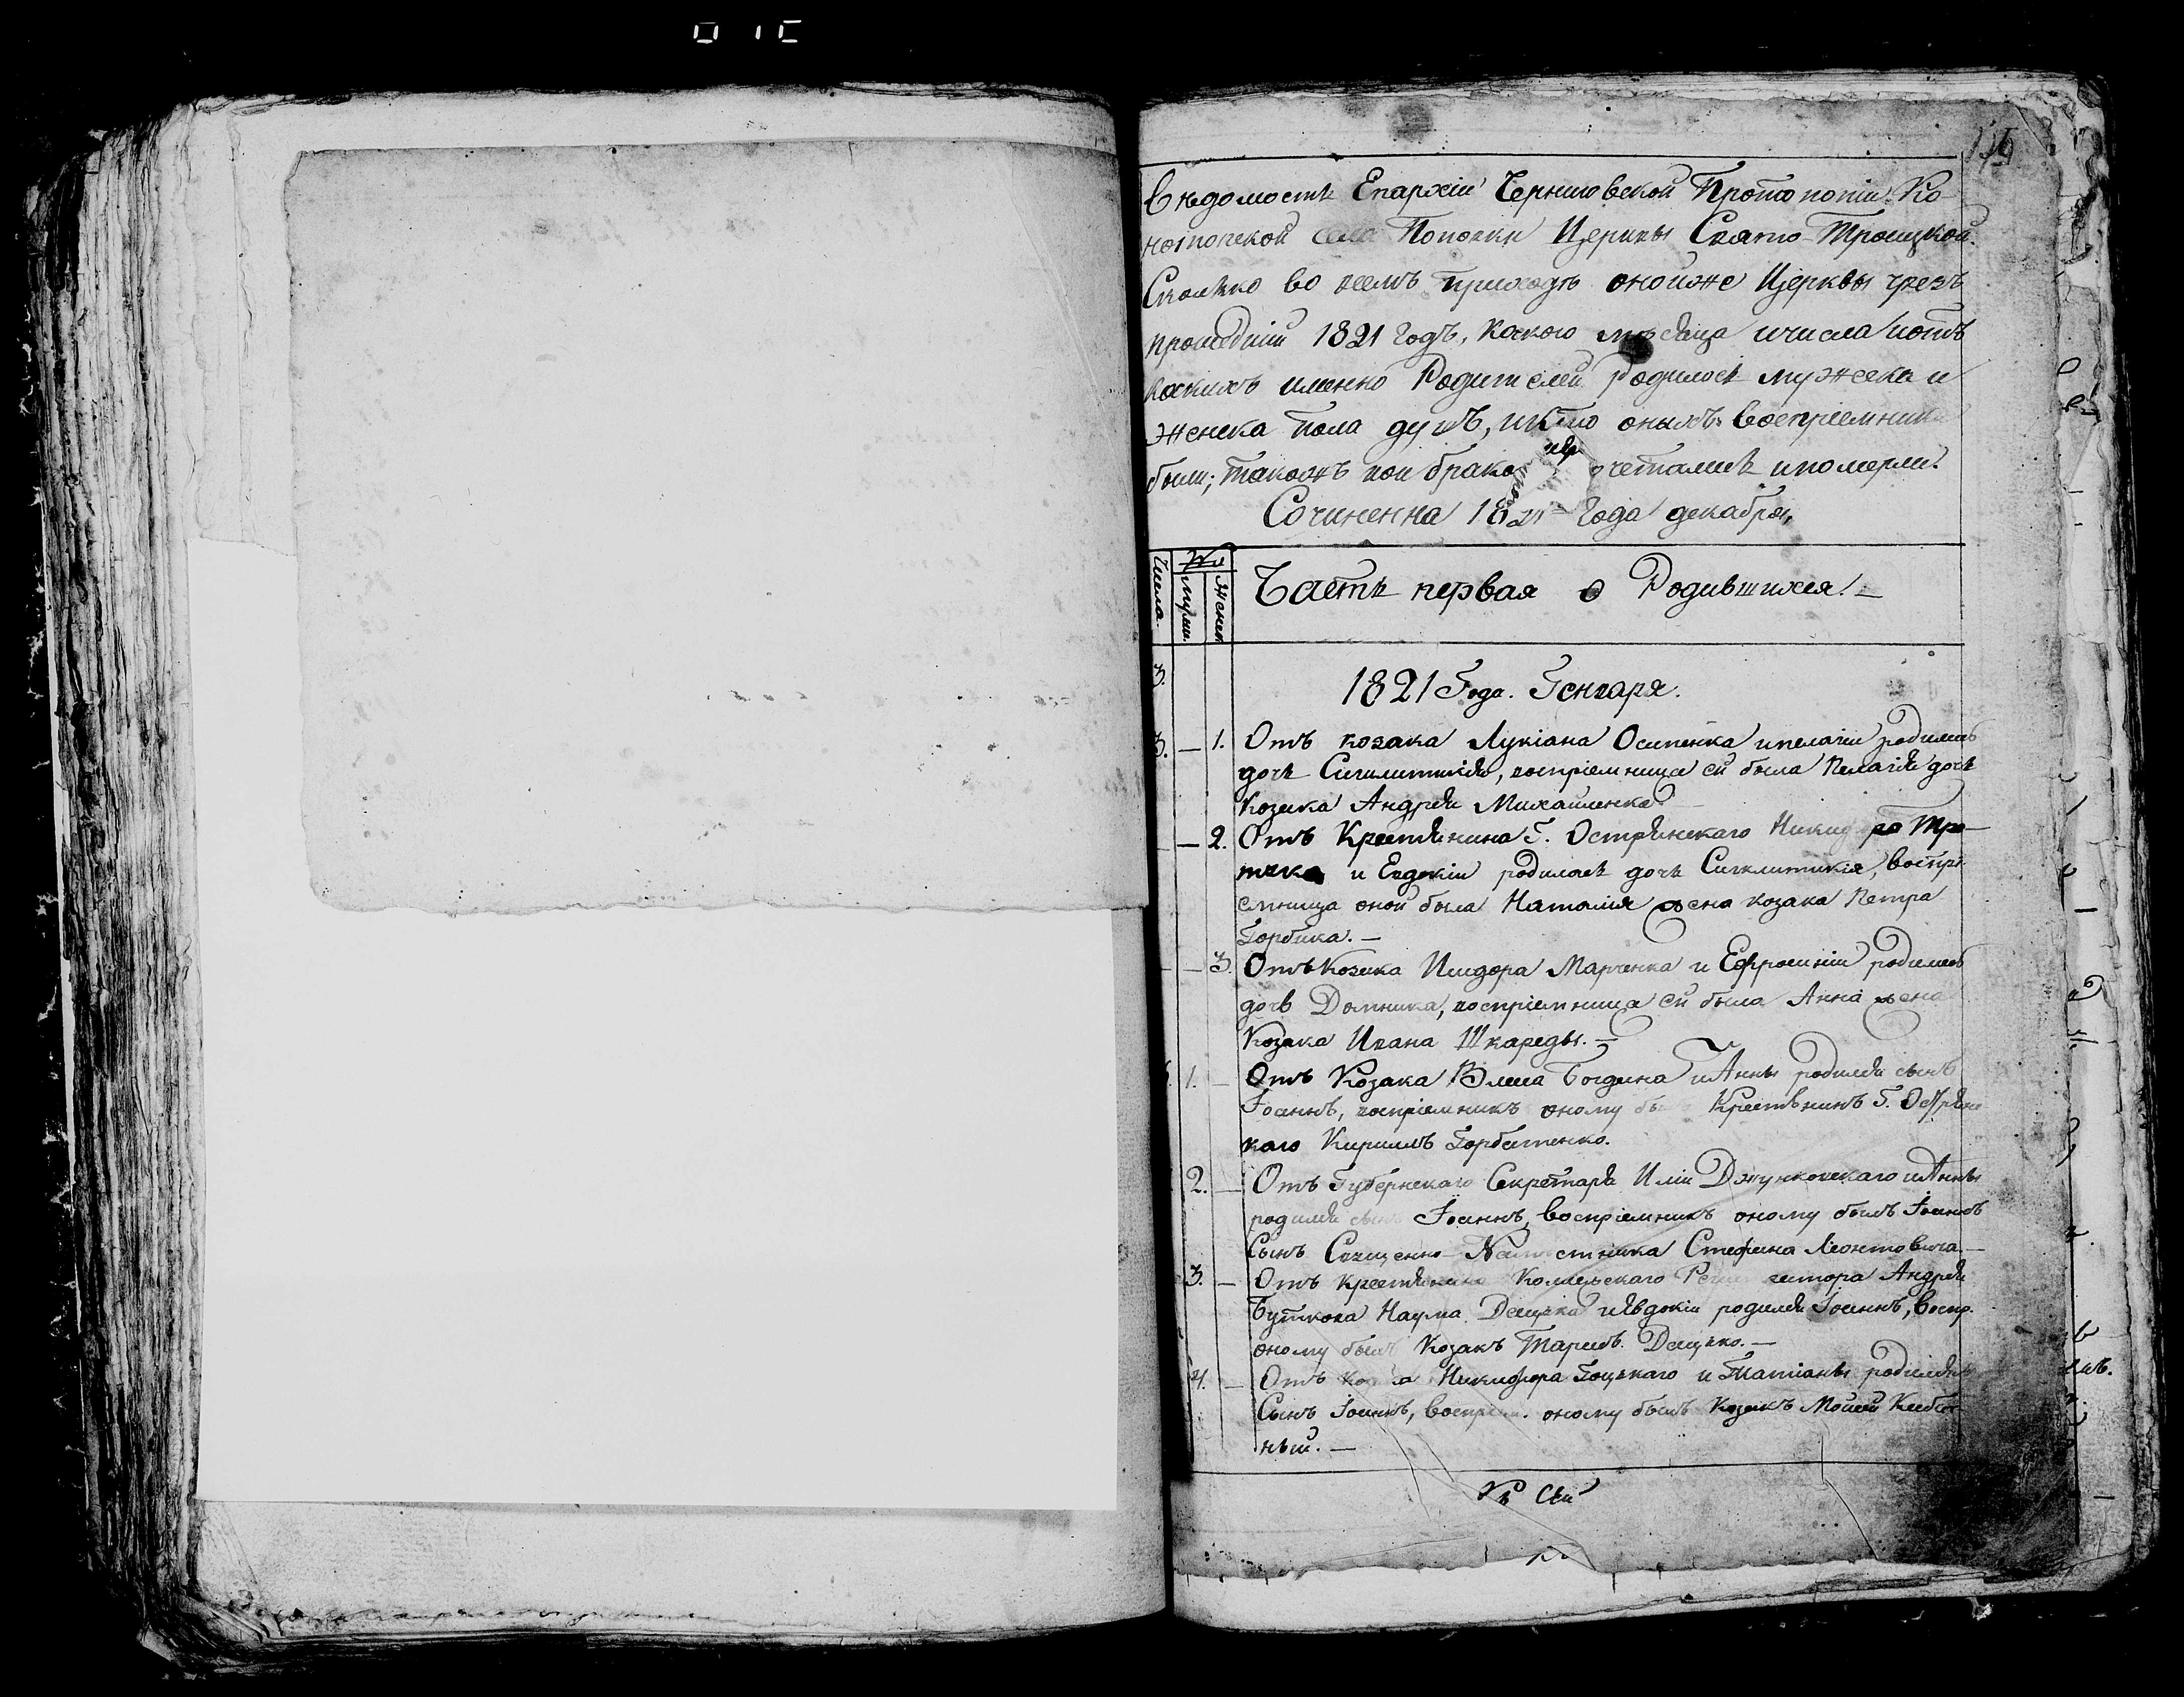 Вѣдомость Епархіи Черниговской Протопопіи Ко-
нотопской села Поповки Церквы Свято-Троицкой.
Сколько во всемъ приходѣ оной же Церквы чрезъ
прошедшій 1821 годъ, какого мѣсяца и числа и отъ
какихъ именно Родителей родилось мужеска и
женска пола душъ, и кто оныхъ воспріемники
были; такожъ кои брако очетались и померли.
Сочиненна 1821 Года декабря,
Числа. № мужеск. женск. Часть первая о Родившихся. —
1821 Года. Генваря.
— 1. Отъ козака Лукіана Осипенка и пелагіи родилась
дочь Сигклитикія, воспріемница ей была Пелагія дочь
Козака Андрея Михайленка
— 2. Отъ Крестянина Г. Острянскаго Тро-
и Евдокіи родилась дочь Сигклитикія, воспрі-
емница оной была Наталія жена козака Петра
Горбика. —
— 3. Отъ Козака Исидора Марченка и Ефросиніи родилась
дочь Домника, воспріемница ей была Анна жена
Козака Ивана Шкареды. —
1. — Отъ Козака и Анны родился сынъ
Іоаннъ, воспріемникъ оному Крестянинъ Г. Острянс-
каго Кириллъ Горбатенко.
2. — Отъ Губернскаго Секретаря Иліи Джунковскаго и Анны
родился сынъ Іоаннъ, воспріемникъ оному былъ Іоаннъ
Сынъ Священно-Намѣстника Стефана Леонтовича. —
3. — Отъ крестянина Андрея
Наума Децька и Явдокіи родился Іоаннъ, воспр.
оному былъ Козакъ Тарасъ Децько. —
4. — Отъ Никифора Гоцькаго и Татіаны родился
Сынъ Іоаннъ, воспріем. оному былъ Козакъ Мойсей
ный. —